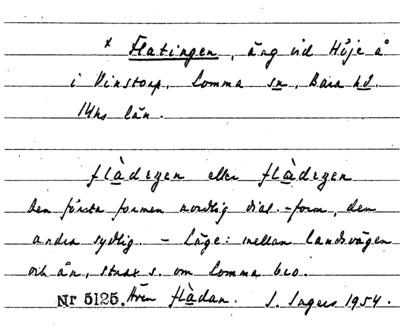 × Flatingen, äng vid Höje å
i Vinstorp, Lomma sn, Bara hd.
M-hs län.
flàdezen eller flàdezen
Den första formen nordlig dial.-form, den
andra sydlig. - Läge: mellan landsvägen
och ån, strax s. om Lomma bro.
Nr 5125. Även flàdan. S. Ingers 1954.